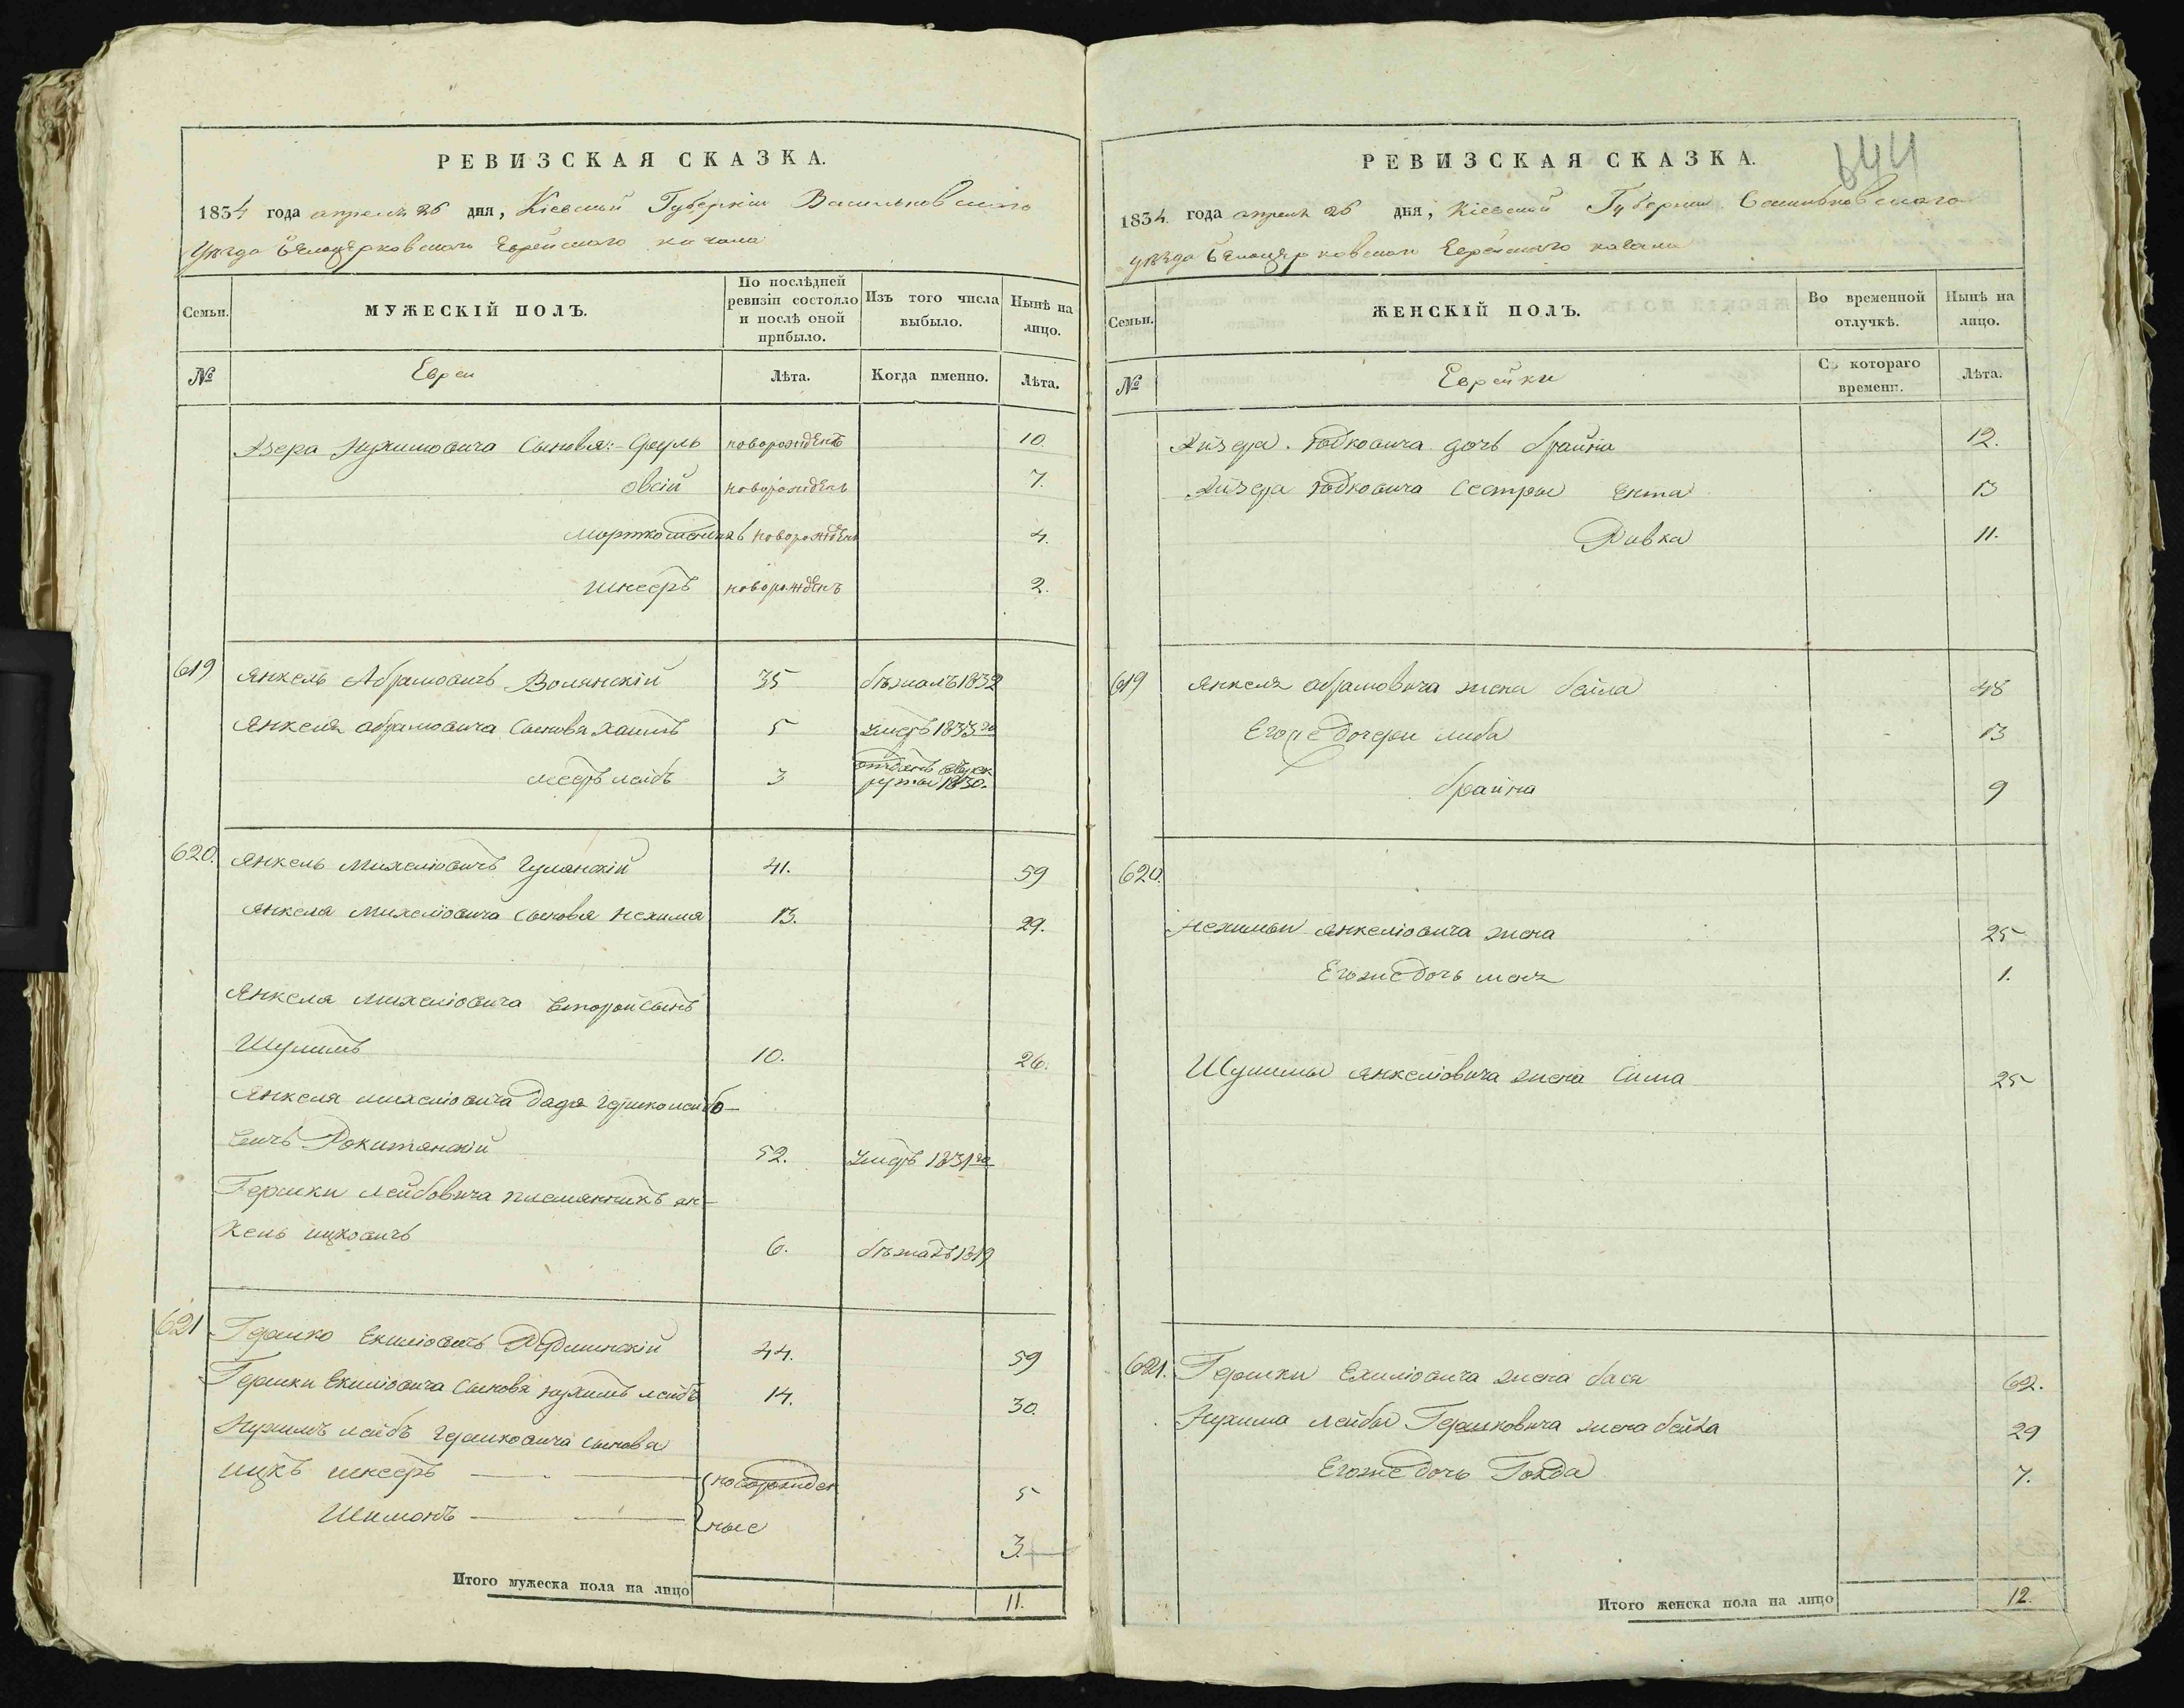 РЕВИЗСКАЯ СКАЗКА.
1834 года апреля 26 дня, Кіевской Губерніи Васильковскаго
уѣзда Белоцерковскаго Еврейскаго кагала
Семьи.
МУЖЕСКІЙ ПОЛЪ.
По послѣдней ревизіи состояло и послѣ оной прибыло.
Изъ того числа выбыло.
Нынѣ на лицо.
№
Евреи
Лѣта.
Когда именно.
Лѣта.
Азера Нухимовича Сыновья: Сруль новорожденъ 10.
Овсій новорожденъ 7.
Мортко новорожденъ 4.
Шнееръ новорожденъ 2.
619 Янкель Абрамовичъ Волянскій 35 бѣжалъ 1832
Янкеля Абрамовича Сыновья Хаимъ 5 умеръ 1833 го
Мееръ Лейбъ 3 отданъ въ рек
руты 1830.
620. Янкель Михеліовичъ Гулянскій 41. 59
Янкеля Михеліовича Сыновья Нехима 13. 29.
Янкеля Михеліовича второй сынъ
Шулимъ 10. 26.
Янкеля Михеліовича дядя Гершко Лейбо-
вичъ Рокитянскій 52. умеръ 1831 го
Гершки Лейбовича племянникъ Ян-
кель Ицковичъ 6. бѣжалъ 1819
621 Гершко Ехиліовичъ 44. 59
Гершки Ехиліовича Сыновья Нухимъ Лейбъ 14. 30.
Нухимъ Лейбъ Гершковича сыновья
Ицкъ Шнееръ новорожден 5
Шимонъ ные 3.
Итого мужеска пола на лицо 11.
644
РЕВИЗСКАЯ СКАЗКА.
1834 года апреля 26 дня, Кіевской Губерніи Васильковскаго
уѣзда Белоцерковскаго Еврейскаго кагала
Семьи.
ЖЕНСКІЙ ПОЛЪ.
Во временной отлучкѣ.
Нынѣ на лицо.
№
Еврейки
Съ котораго времени.
Лѣта.
Юдковича дочь Брайна 12.
Юдковича Сестры Ента 13
Ривка 11.
619 Янкеля Абрамовича жена Бейла 48
Его же дочери Либа 13
Брайна 9
620.
Нехимы Янкеліовича жена 25
Его же дочь 1.
Шулимы Янкеліовича жена Сима 25
621. Гершки Ехиліовича жена Бася 62.
Нухима Лейбы Гершковича жена Бейла 29
Его же дочь Голда 7.
Итого женска пола на лицо 12.